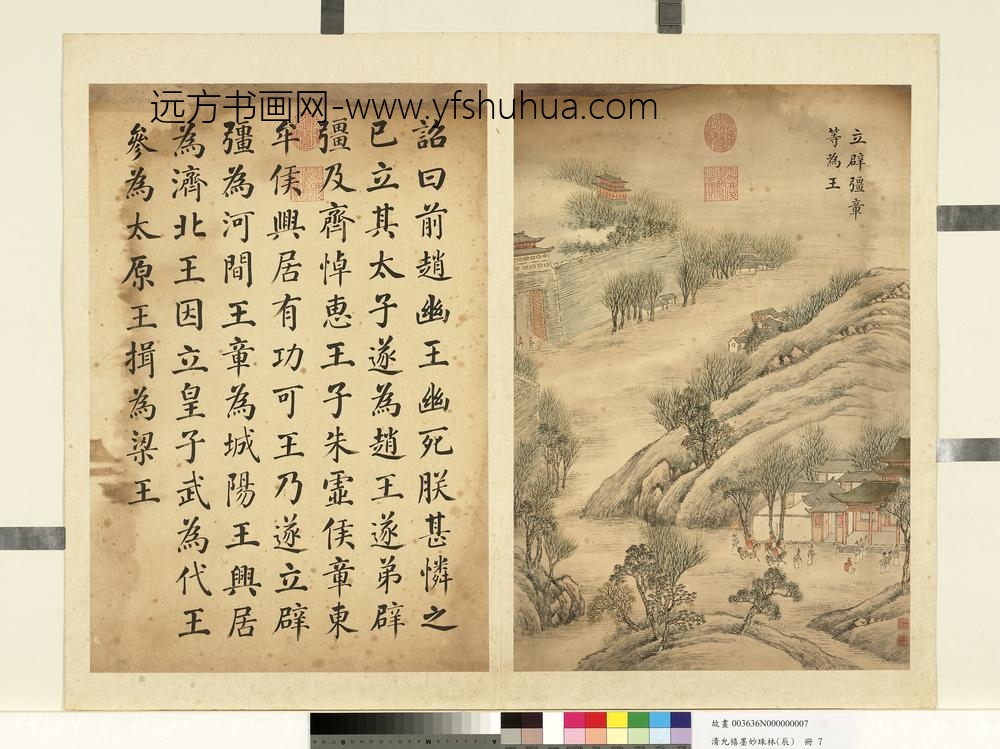 远方书画网-www.yfshuhua.com
立辟彊章
等為王
詔曰前趙幽王幽死朕甚憐之
已立其太子遂為趙王遂弟辟
彊及齊悼惠王子朱虛侯章東
牟侯興居有功可王乃遂立辟
彊為河間王章為城陽王興居
為濟北王因立皇子武為代王
參為太原王揖為梁王
故畫 003636N000000007
清允禧墨妙珠林(辰) 冊 7